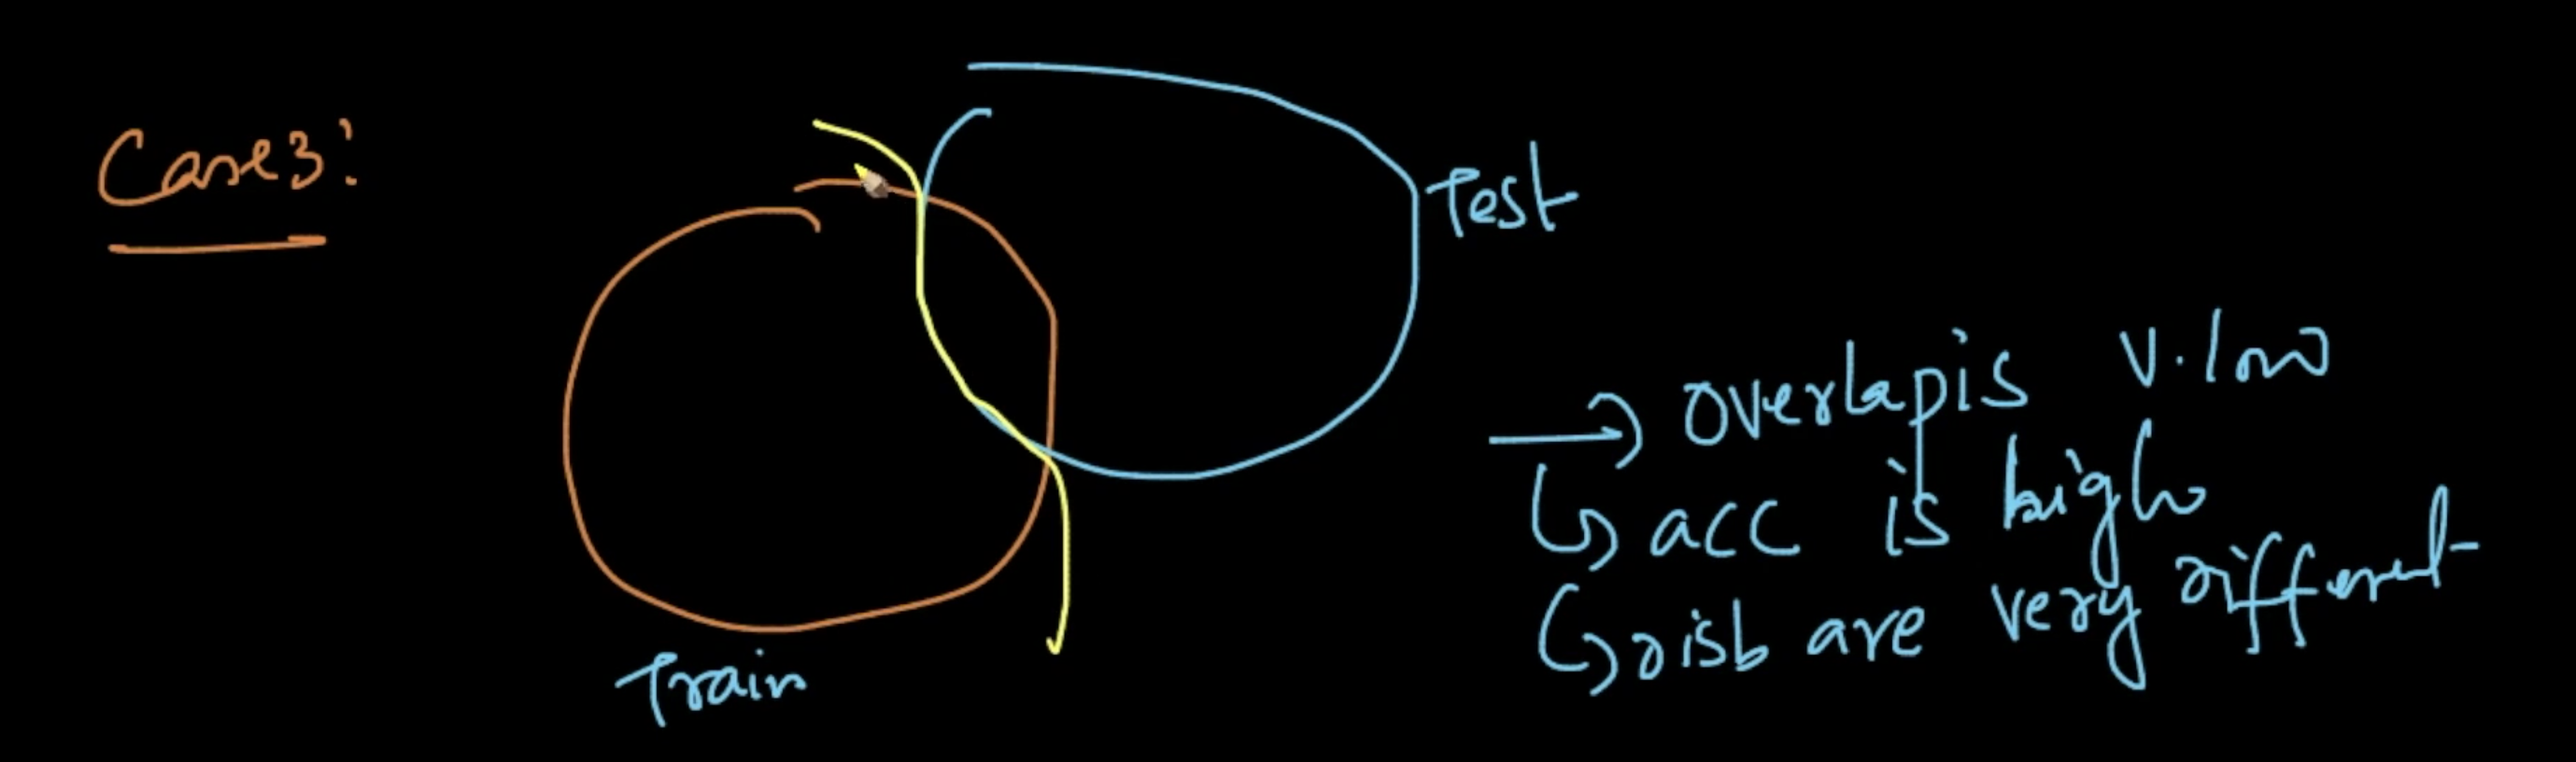 Case3:
Test
Train
→ overlap is v.low
↳ acc is high
↳ disb are very different